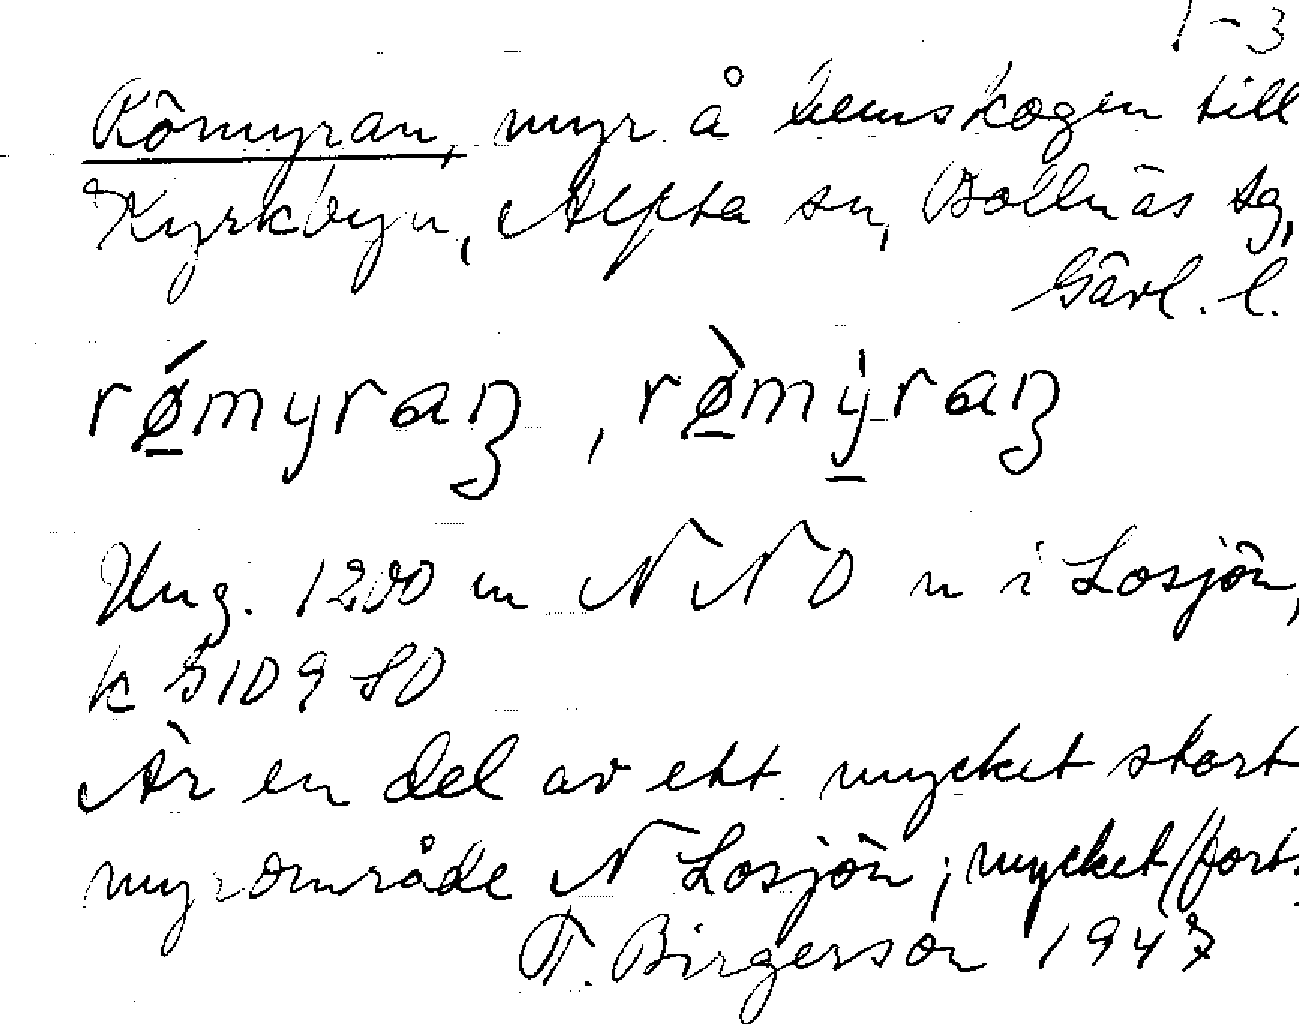 1-3
Römyran, myr å hemskogen till
Kyrkbyn, Alfta sn, Bollnäs tg,
Gävl. l.
rǿ̱myraꞥ, rø̱̀mỳ̱raꞥ
Ung. 1200 m NNO n i Losjön,
k 5109 SO
Är en del av ett mycket stort
myrområde N Losjön; mycket/forts.
T. Birgerson 1947